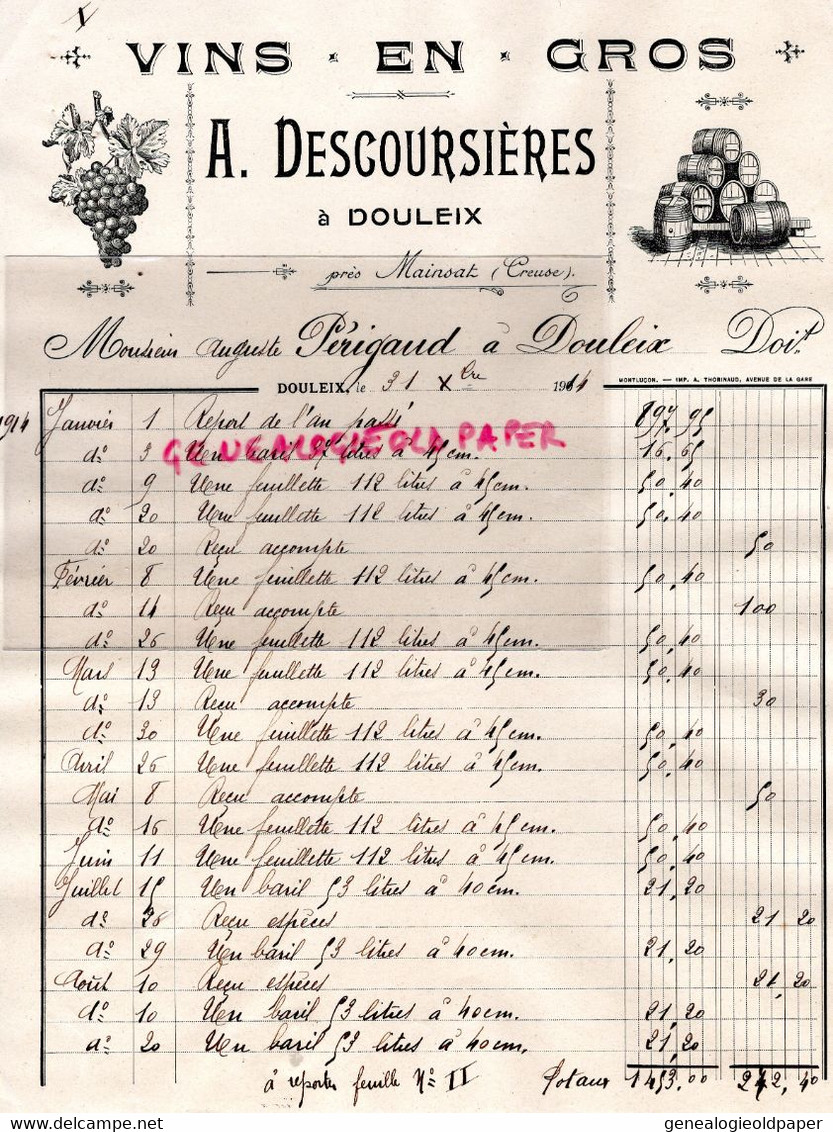 VINS · EN · GROS
A. DESCOURSIÈRES
à DOULEIX
près Mainsat (Creuse).
Monsieur Auguste Périgaud à Douleix Doit
MONTLUÇON. — IMP. A. THORINAUD, AVENUE DE LA GARE
DOULEIX, le 31 Xbre 1914
1914 Janvier 1 Report de l'an passé 897.95
do 3 Un baril 37 litres à 45cm. 16.65
GENEALOGIEOLDPAPER
do 9 Une feuillette 112 litres à 45cm. 50.40
do 20 Une feuillette 112 litres à 45cm. 50.40
do 20 Reçu accompte 50
Février 8 Une feuillette 112 litres à 45cm. 50.40
do 14 Reçu accompte 100
do 26 Une feuillette 112 litres à 45cm. 50.40
Mars 13 Une feuillette 112 litres à 45cm. 50.40
do 13 Reçu accompte 30
do 30 Une feuillette 112 litres à 45cm. 50.40
Avril 26 Une feuillette 112 litres à 45cm. 50.40
Mai 8 Reçu accompte 50
do 16 Une feuillette 112 litres à 45cm. 50.40
Juin 11 Une feuillette 112 litres à 45cm. 50.40
Juillet 15 Un baril 53 litres à 40cm. 21.20
do 26 Reçu espèces 21 20
do 29 Un baril 53 litres à 40cm. 21.20
Août 10 Reçu espèces 21,20
do 10 Un baril 53 litres à 40cm. 21.20
do 20 Un baril 53 litres à 40cm. 21,20
à reporter feuille No II Totaux 1453.00 242,40
genealogieoldpaper